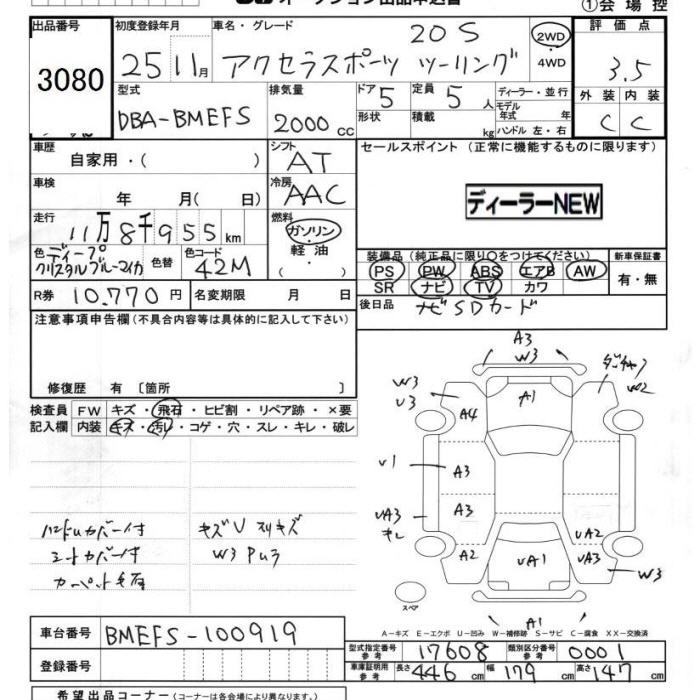 ①会場控
出品番号 初度登録年月 車名・グレード 20S 2WD 評価点
3080 25 11月 アクセラスポーツ ツーリング ・4WD 3.5
型式 排気量 ドア 5 定員 5人 ディーラー・並行 外装 内装
DBA-BMEFS 2000cc 形状 積載 kg モデル年式 年 C C
ハンドル 左・右
車歴 シフト セールスポイント (正常に機能するものに限ります)
自家用・( ) AT
車検 冷房 ディーラーNEW
年 月( 日) AAC
走行 燃料
11万8千955km ガソリン
色 ディープクリスタルブルーマイカ 色替 色コード 42M 軽油・( )
装備品(純正品に限り○をつけてください) 新車保証書
PS PW ABS エアB AW 有・無
SR ナビ TV カワ
R券 10.770円 名変期限 月 日
後日品 ナビSDカード
注意事項申告欄(不具合内容等は具体的に記入して下さい)
修復歴 有〔箇所 〕
検査員 FW キズ・飛石・ヒビ割・リペア跡・×要
記入欄 内装 キズ・汚レ・コゲ・穴・スレ・キレ・破レ
A3
W3
W3
U3
A4
A1
A3
A3
UA3
キレ
A2
UA1
UA2
UA3
W3
A1
スペア
ハンドルカバー付 キズU スリキズ
シートカバー付
A-キズ E-エクボ U-凹み W-補修跡 S-サビ C-腐食 XX-交換済
車台番号 BMEFS-100919
型式指定番号 参考 17608 類別区分番号 参考 0001
登録番号
車庫証明用 参考 長さ 446cm 幅 179cm 高さ 147cm
希望出品コーナー(コーナーは各会場により異なります。)